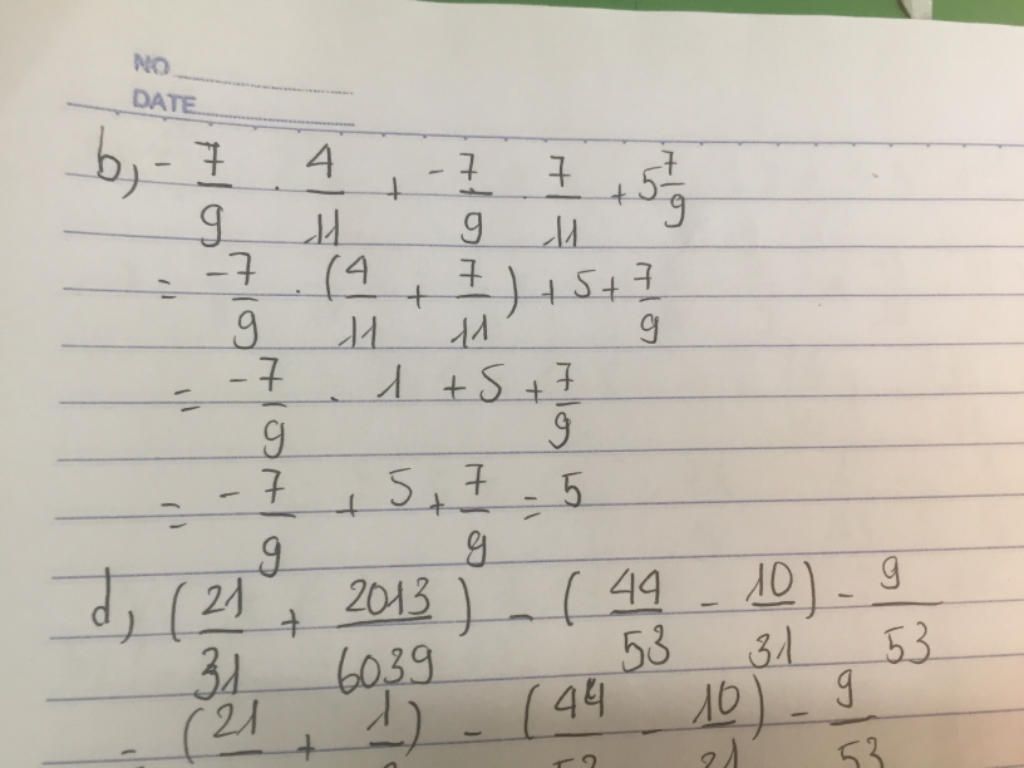 NO
DATE
b, -7/9 . 4/11 + -7/9 . 7/11 + 5 7/9
= -7/9 . (4/11 + 7/11) + 5 + 7/9
= -7/9 . 1 + 5 + 7/9
= -7/9 + 5 + 7/9 = 5
d, (21/31 + 2013/6039) - (44/53 - 10/31) - 9/53
= (21 + 1) - (44 - 10/31) - 9/53